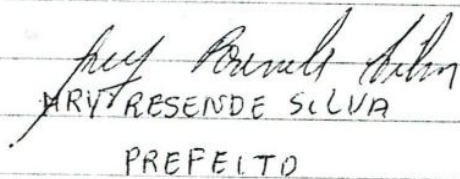 ARY RESENDE SILVA
PREFEITO